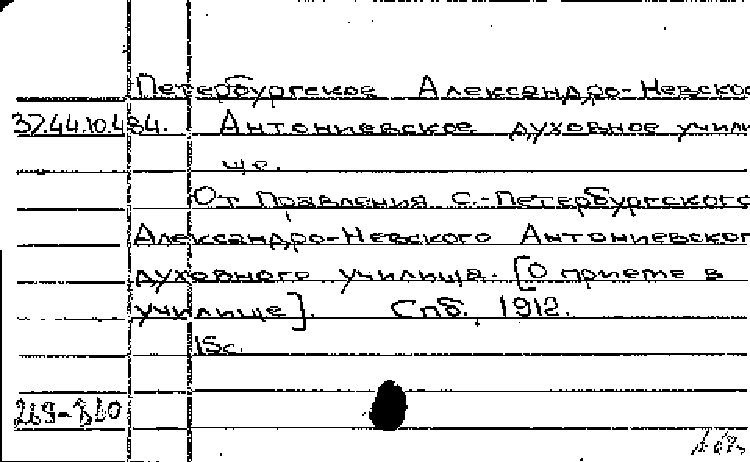 Петербургское Александро-Невское
37.44.10.484. Антониевское духовное учили
ще.
От Правления С.-Петербургского
Александро-Невского Антониевског
духовного училища. [О приеме в
училище]. Спб. 1912.
15с.